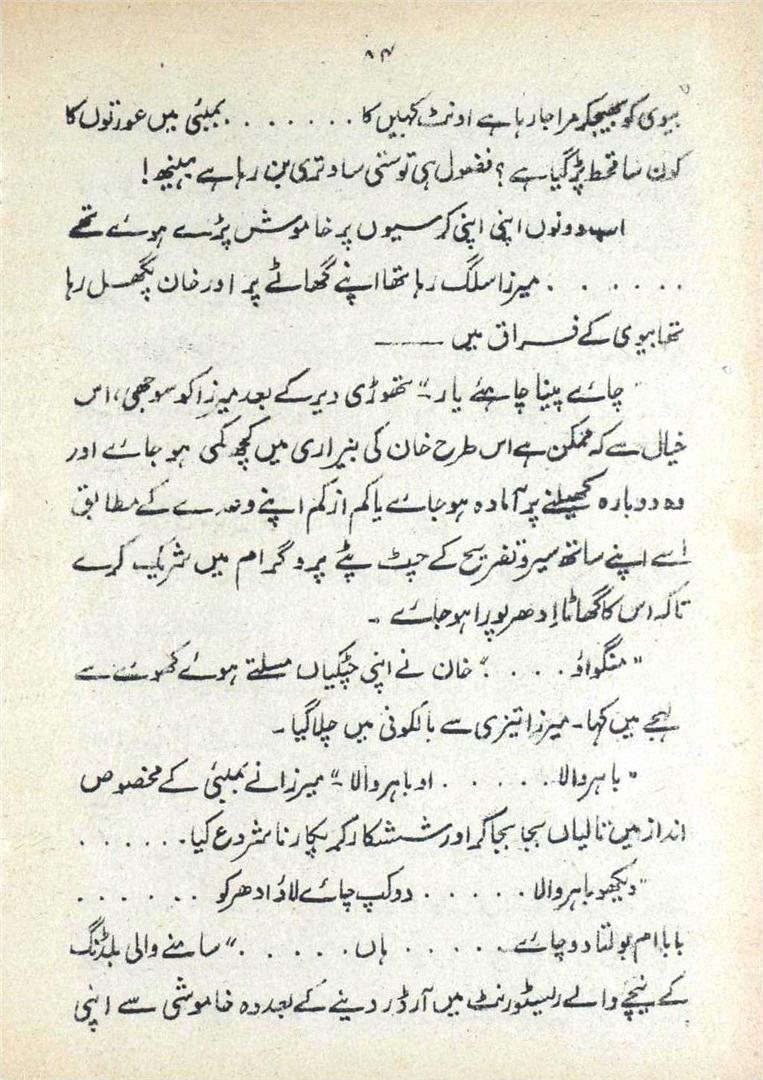 ۸۴
بیوی کو بھیجکر مرا جا رہا ہے اونٹ کہیں کا ....... بمبئی میں عورتوں کا
کون سا قحط پڑ گیا ہے؟ فضول ہی تو ستی ساوتری بن رہا ہے ہنہ!
اب دونوں اپنی اپنی کرسیوں پر خاموش پڑے ہوئے تھے
...... میرزا سلگ رہا تھا اپنے گھاٹے پر اور خان پگھل رہا
تھا بیوی کے فراق میں ——
"چائے پینا چاہئے یار۔" تھوڑی دیر کے بعد میرزا کو سوجھی، اس
خیال سے کہ ممکن ہے اس طرح خان کی بیزاری میں کچھ کمی ہو جائے اور
وہ دوبارہ کھیلنے پر آمادہ ہو جائے یا کم از کم اپنے وعدے کے مطابق
اُسے اپنے ساتھ سیر و تفریح کے چٹ پٹے پروگرام میں شریک کرے
تاکہ اس کا گھاٹا اِدھر پورا ہو جائے ۔
"منگواؤ ....." خان نے اپنی چٹکیاں مسلتے ہوئے کھوئے سے
لہجے میں کہا۔ میرزا تیزی سے بالکونی میں چلا گیا۔
"باہر والا ...... او باہر والا۔" میرزا نے بمبئی کے مخصوص
انداز میں تالیاں بجا بجا کر اور ششکار کر پکارنا شروع کیا ......
"دیکھو باہر والا ..... دو کپ چائے لاؤ ادھر کو ......
بابا ام بولتا دو چائے ..... ہاں ....." سامنے والی بلڈنگ
کے نیچے والے ریسٹورنٹ میں آرڈر دینے کے بعد وہ خاموشی سے اپنی